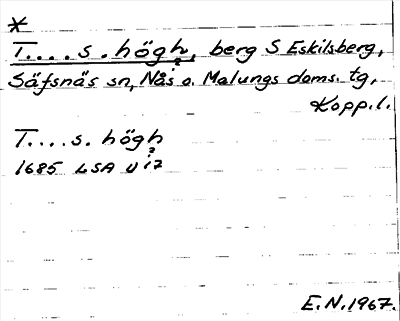 *
T....s. högh, berg S Eskilsberg,
Säfsnäs sn, Nås o. Malungs doms. tg,
Kopp. l.
T....s. högh
1685 LSA U i 7
E. N. 1967.